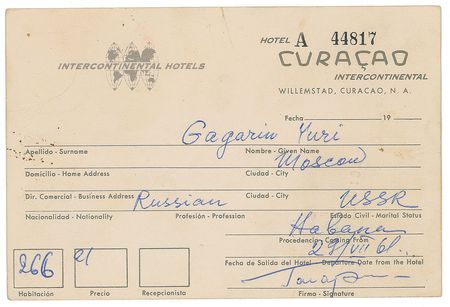 HOTEL A 44817
INTERCONTINENTAL HOTELS
CURAÇAO
INTERCONTINENTAL
WILLEMSTAD, CURACAO, N. A.
Fecha 19
Gagarin Yuri
Apellido - Surname Nombre - Given Name
Moscow
Domicilio - Home Address Ciudad - City
USSR
Dir. Comercial - Business Address Ciudad - City
Russian
Nacionalidad - Nationality Profesión - Profession Estado Civil - Marital Status
Habana
Procedencia - Coming From
29/VII 61.
Fecha de Salida del Hotel - Departure Date from the Hotel
266 21
Habitación Precio Recepcionista Firma - Signature